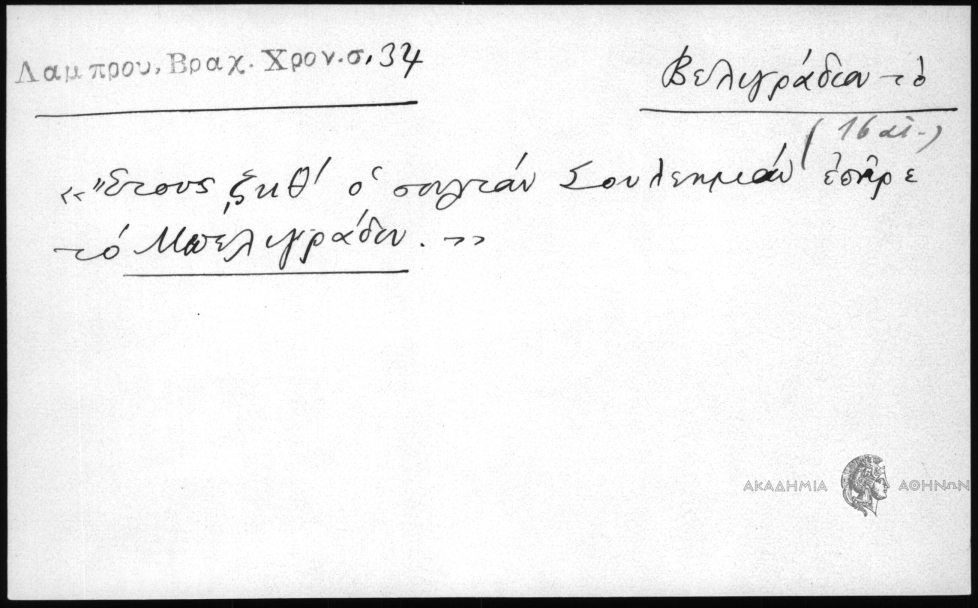 Λαμπρου, Βραχ. Χρον. σ. 34
Βελιγράδιον τὸ
(16 αἰ.)
«Ἔτους ζκθ' ὁ σουλτάν Σουλεημάν ἐπῆρε
τὸ Μπελιγράδιν.»
ΑΚΑΔΗΜΙΑ ΑΘΗΝΩΝ